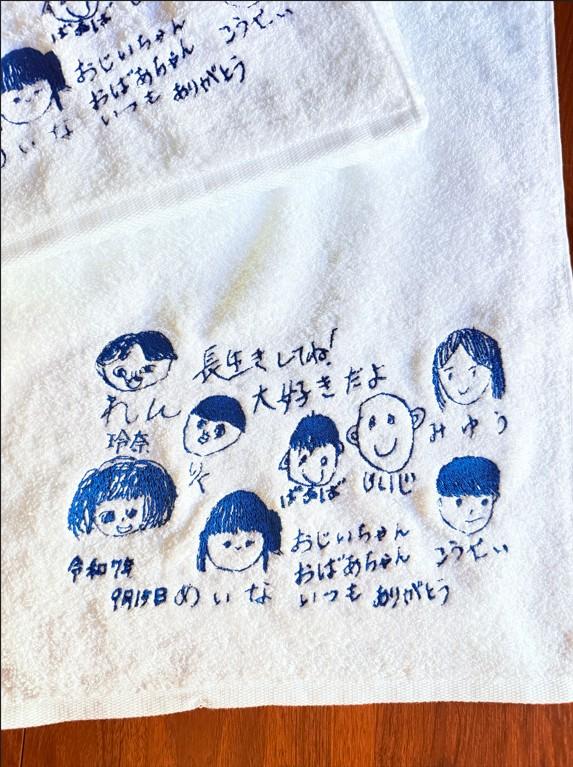 ばあば
こうせい
おじいちゃん
おばあちゃん
いつも ありがとう
めいな
長生きしてね!
大好きだよ
れん
玲奈
りく
ばあば
じいじ
みゆう
おじいちゃん
おばあちゃん
いつも ありがとう
こうせい
令和7年
9月15日
めいな